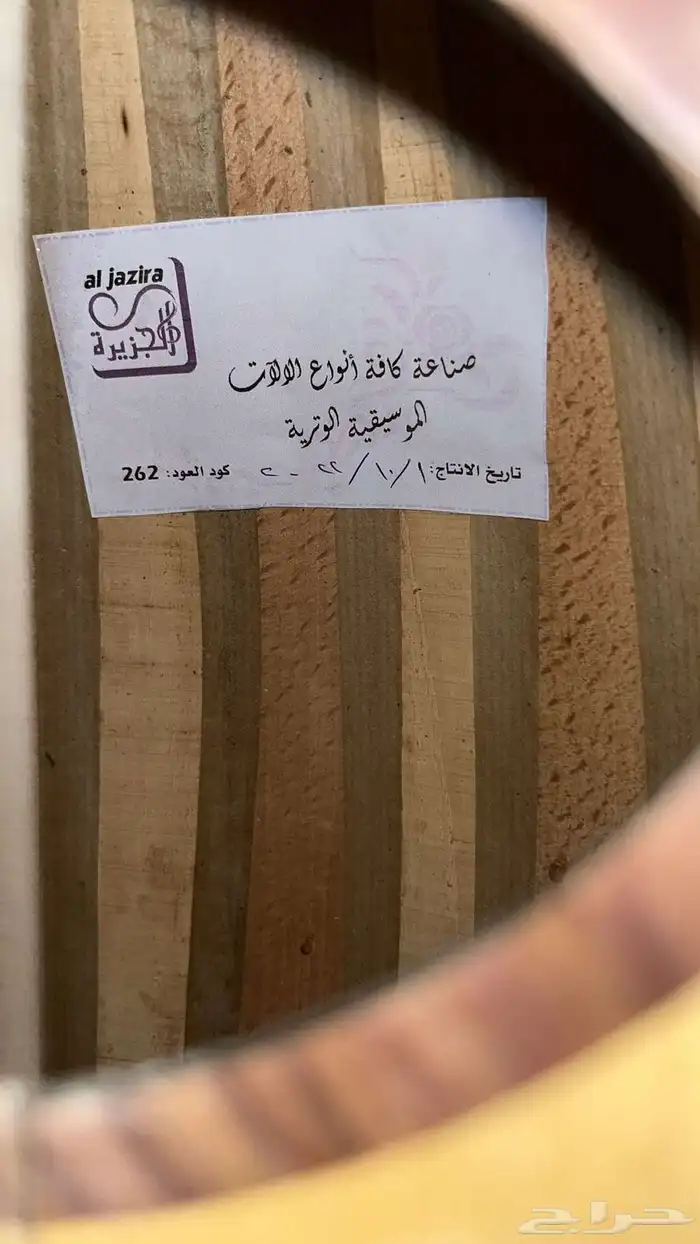 al jazira
الجزيرة
صناعة كافة أنواع الالآت
الموسيقية الوترية
تاريخ الانتاج: ١/١٠/٢٠٢٢ كود العود: 262
حراج